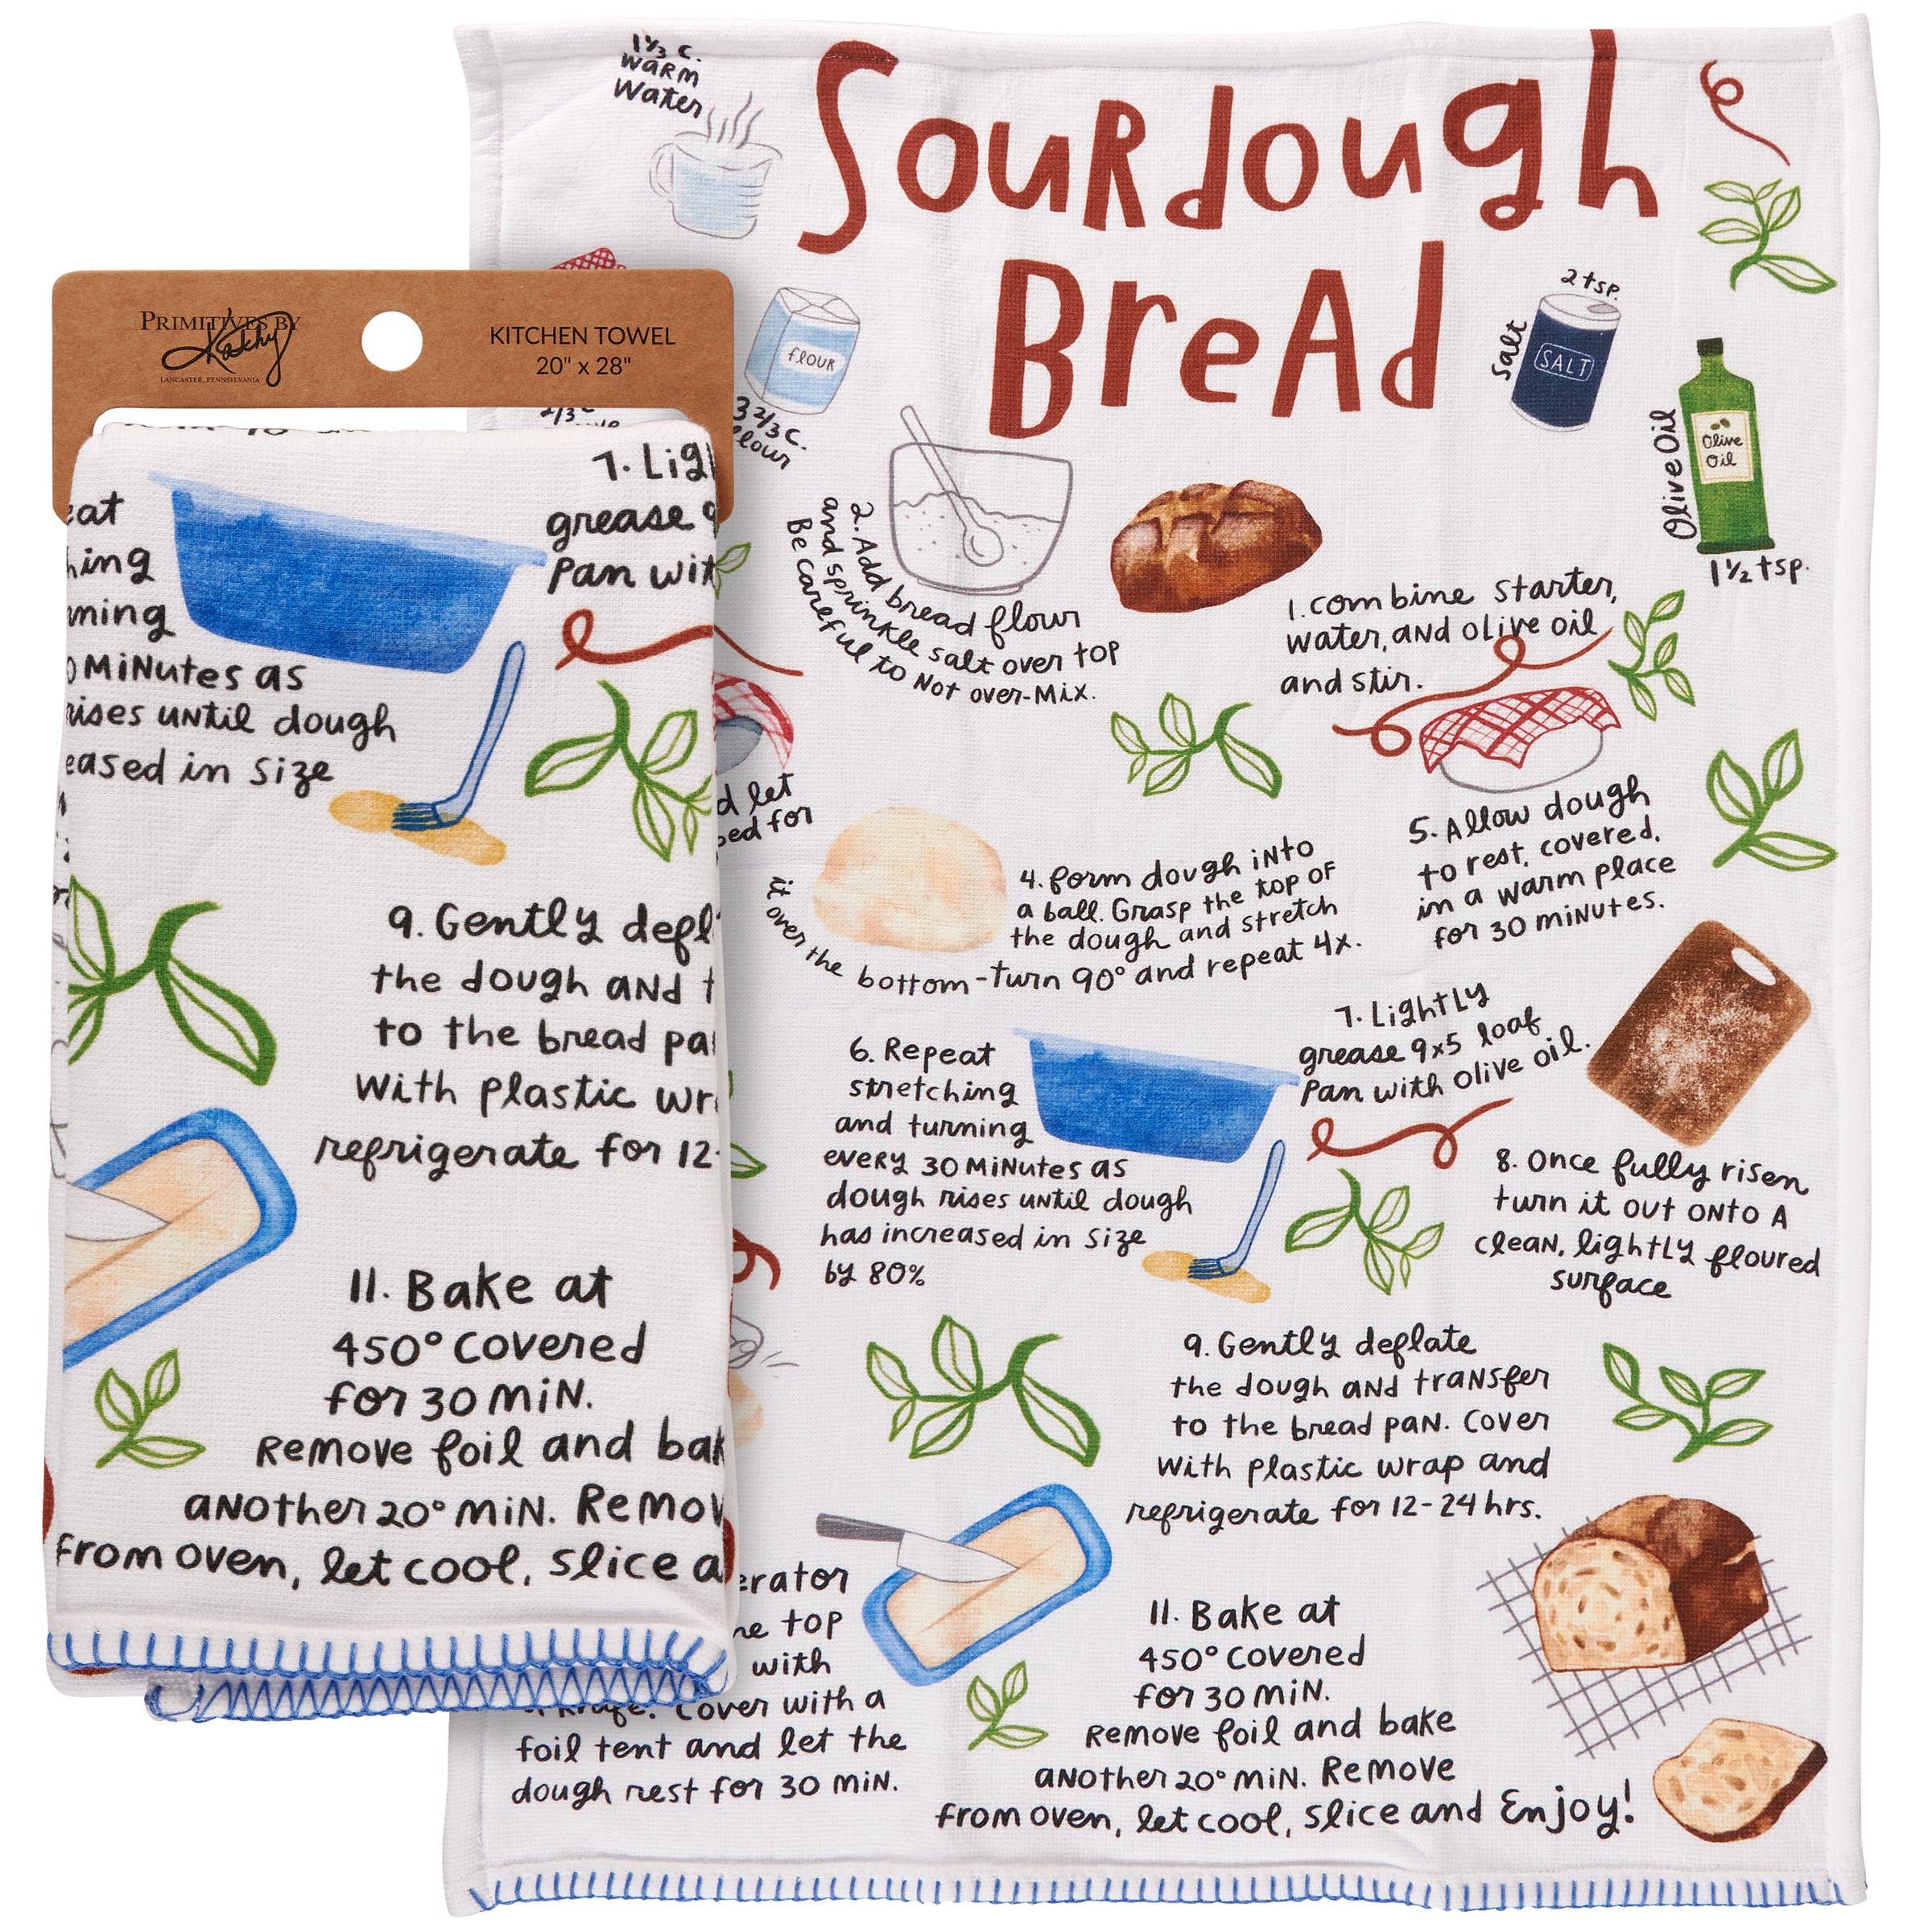 1⅓ c.
warm
water
Sourdough
Bread
PRIMITIVES BY
Kathy
LANCASTER, PENNSYLVANIA
KITCHEN TOWEL
20" x 28"
flour
3 2/3 c.
flour
2/3 c
2 tsp.
Salt
SALT
Olive Oil
Olive
Oil
1½ tsp.
1. Combine starter,
water, and olive oil
and stir.
2. Add bread flour
and sprinkle salt over top
Be careful to not over-mix.
d let
for
4. Form dough into
a ball. Grasp the top of
the dough and stretch
it over the bottom-turn 90° and repeat 4x.
5. Allow dough
to rest, covered,
in a warm place
for 30 minutes.
6. Repeat
stretching
and turning
every 30 minutes as
dough rises until dough
has increased in size
by 80%
7. Lightly
grease 9x5 loaf
pan with olive oil.
8. Once fully risen
turn it out onto a
clean, lightly floured
surface
9. Gently deflate
the dough and transfer
to the bread pan. Cover
with plastic wrap and
refrigerate for 12-24 hrs.
erator
top
with
a knife. Cover with a
foil tent and let the
dough rest for 30 min.
11. Bake at
450° covered
for 30 min.
Remove foil and bake
another 20° min. Remove
from oven, let cool, slice and Enjoy!
7. Lig
grease 9
pan wit
eat
hing
rning
0 minutes as
rises until dough
eased in size
9. Gently defl
the dough and t
to the bread pa
with plastic wr
refrigerate for 12-
11. Bake at
450° covered
for 30 min.
Remove foil and bak
another 20° min. Remov
from oven, let cool, slice a